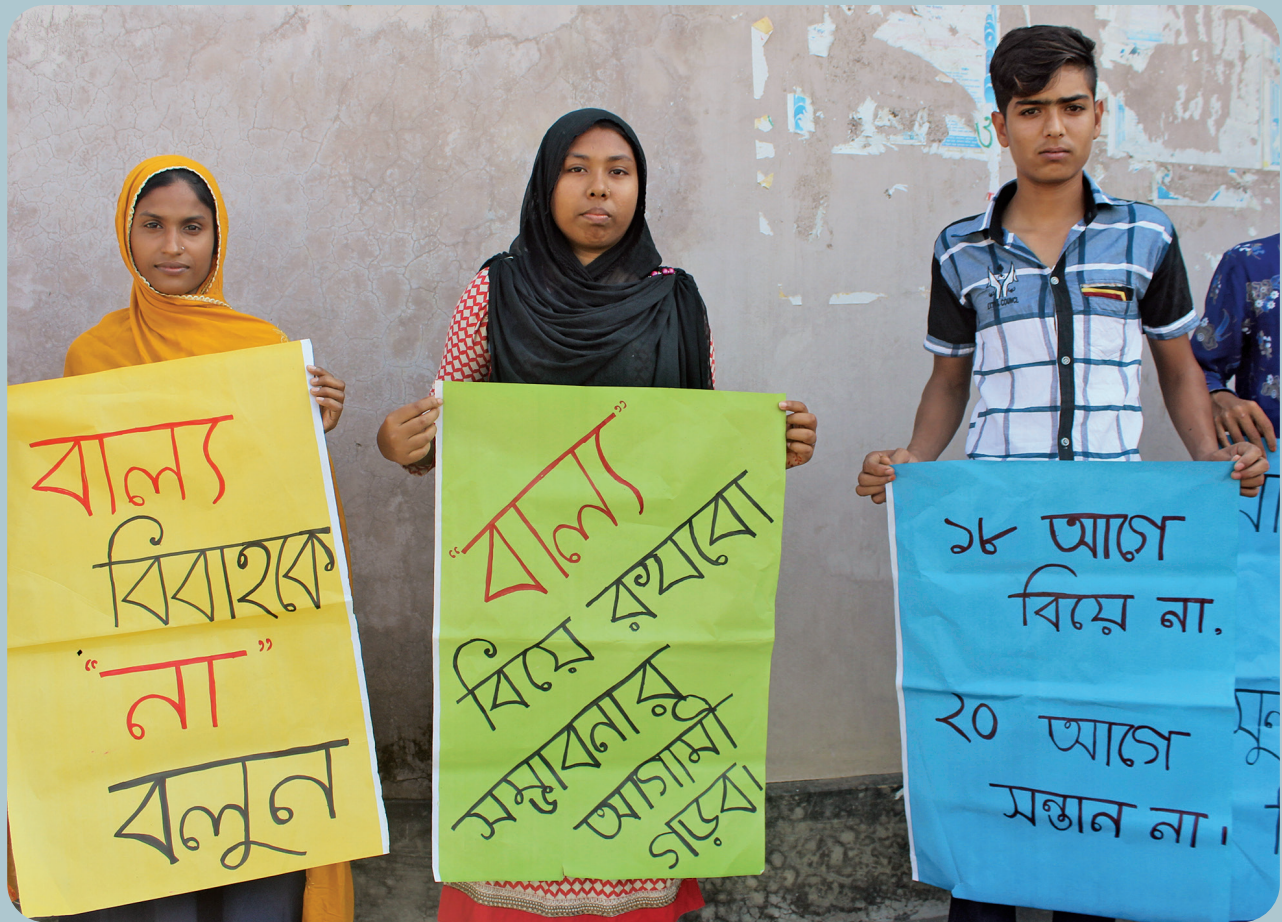 বাল্য
বিবাহকে
"না"
বলুন
"বাল্য"
বিয়ে রুখবো
সম্ভাবনার
আগামী
গড়ব।
১৮ আগে
বিয়ে না,
২০ আগে
সন্তান না।